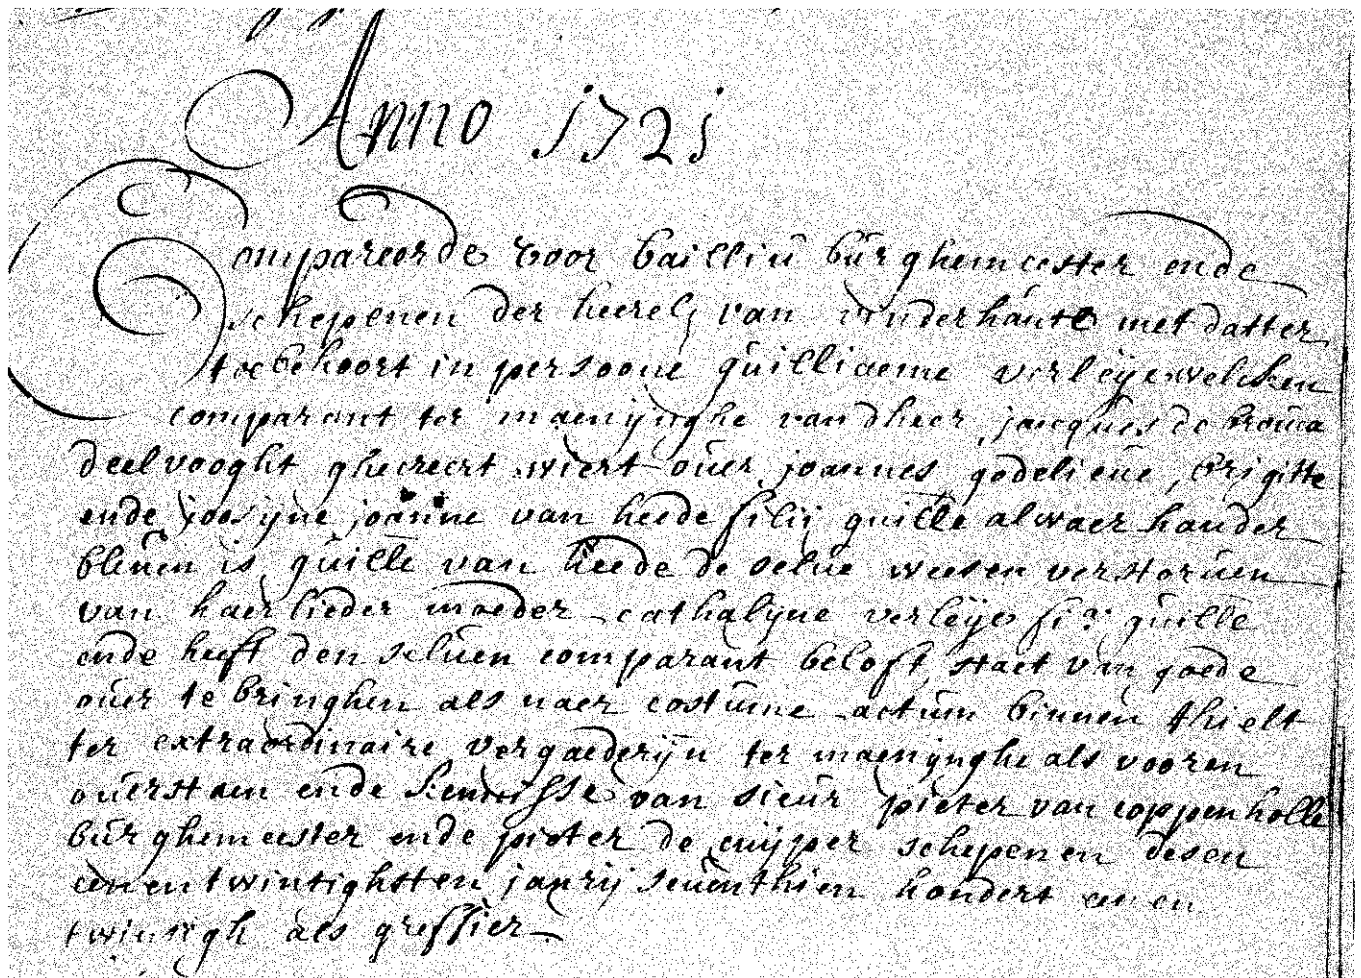 Anno 1721
Compareerde voor bailliu burghemeester ende
schepenen der heerel: van vinderhaute met datter
toebehoort in persoone guilliaeme verleije welcken
comparant ter maenijnghe van dheer jacques de
deelvooght ghecreert wiert over joannes godelieve, brigitte
ende joosijne joanne van heede filij guille alwaer hauder
bleven is guille van heede de selve weesen verstorven
van haerlieder moeder cathalyne verleije fi.ᵃ guille
ende heeft den selven comparant beloft staet van goede
over te bringhen als naer costume actum binnen thielt
ter extraordinaire vergaederijn ter maenijnghe als vooren
overstaen ende kennisse van sieur pieter van coppenholle
burghemeester ende pieter de cuijper schepenen desen
eenentwintighsten janrij seventhien hondert een en
twintigh als greffier